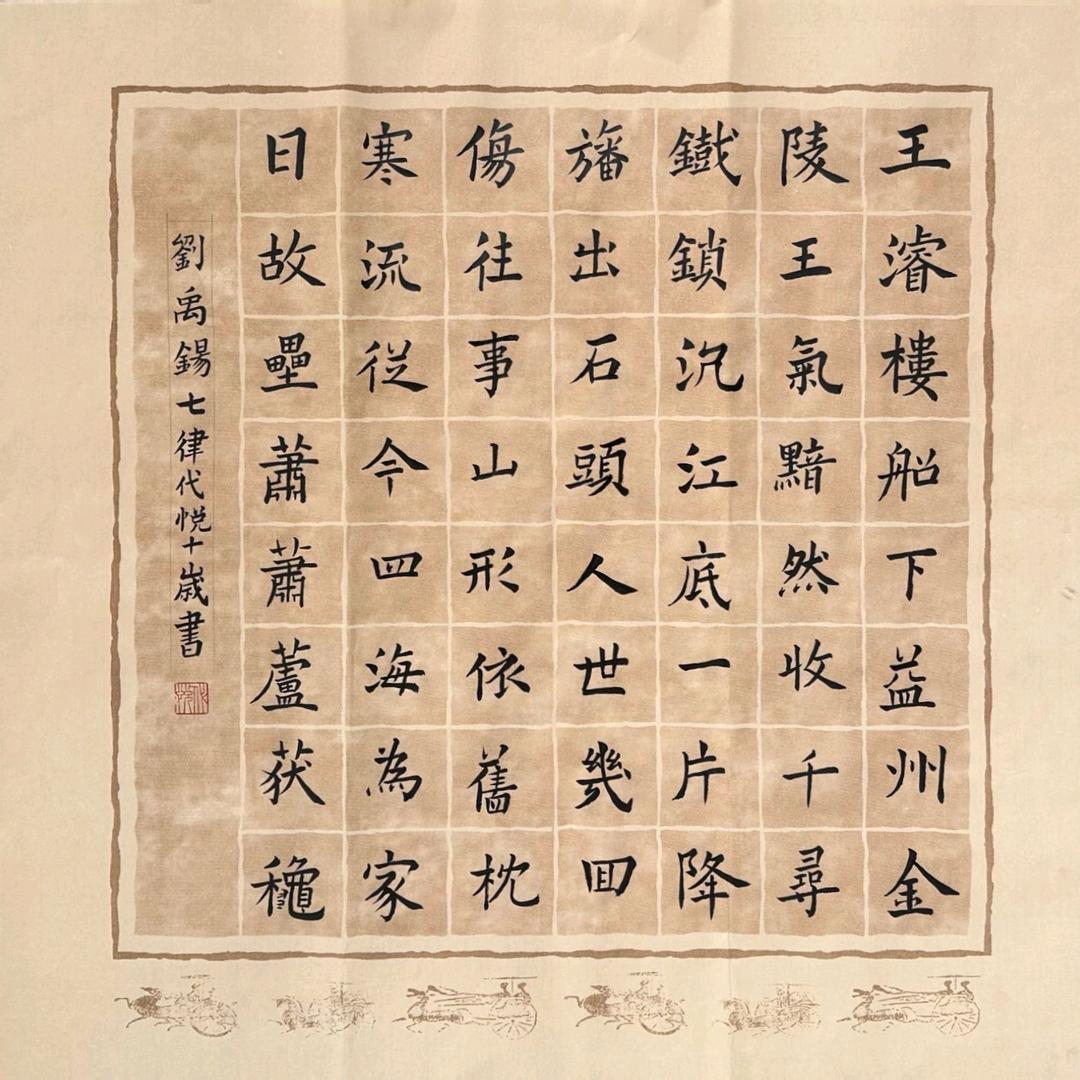 王濬樓船下益州金
陵王氣黯然收千尋
鐵鎖沉江底一片降
旛出石頭人世幾回
傷往事山形依舊枕
寒流從今四海為家
日故壘蕭蕭蘆荻穐
劉禹錫七律代悅十歲書